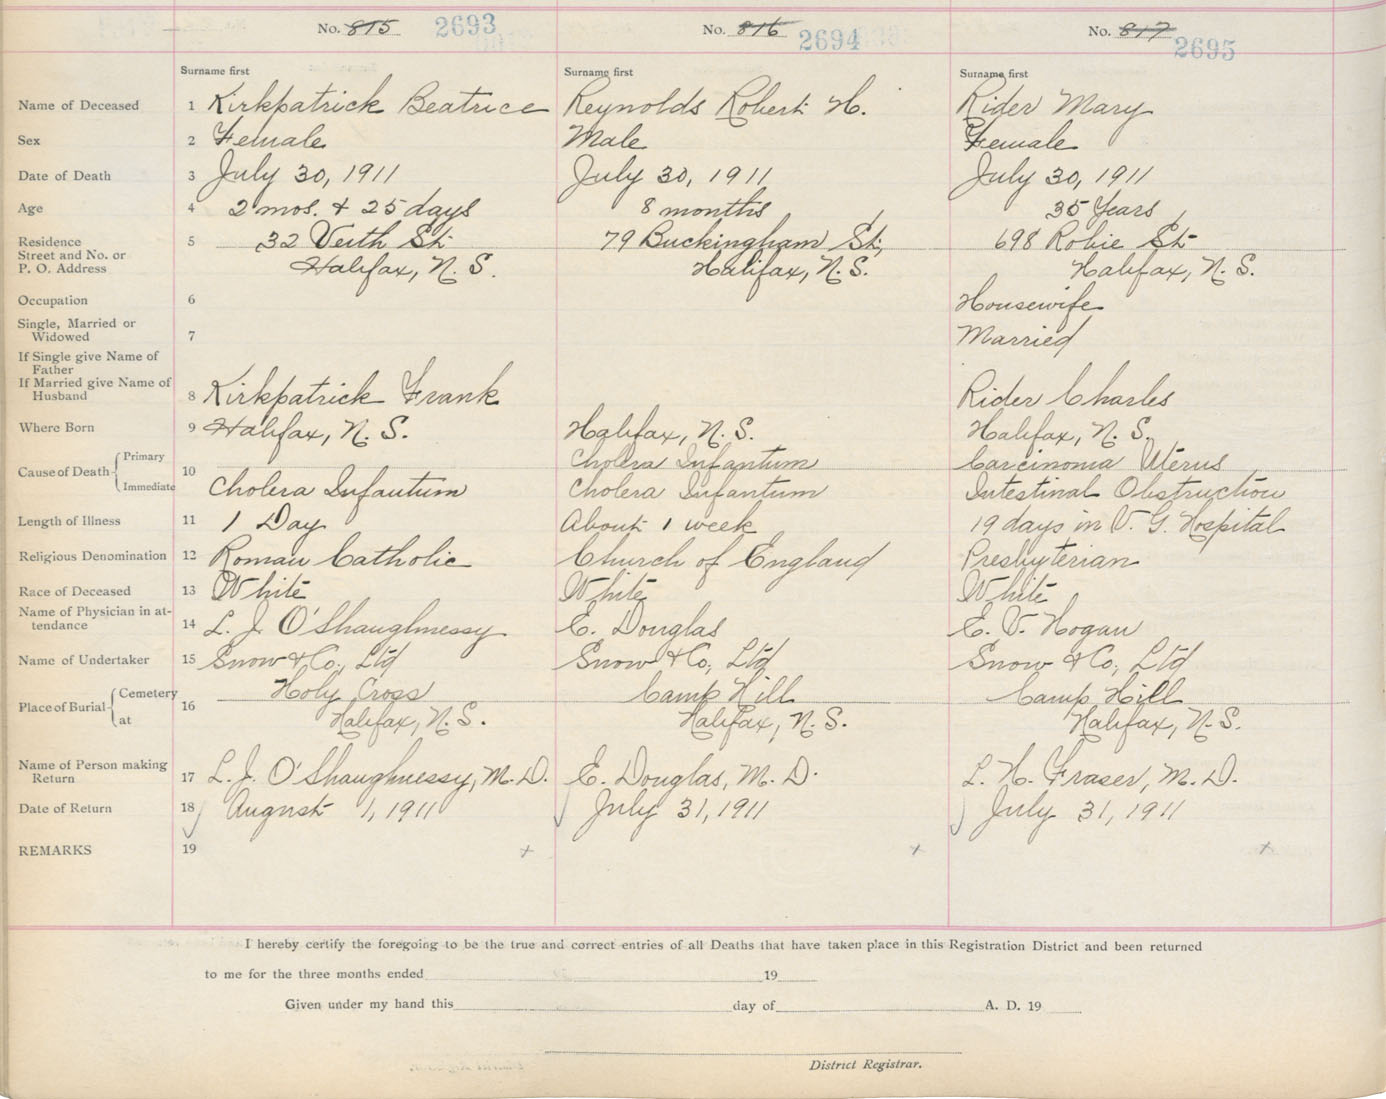 No. 815 2693
No. 816 2694
No. 817 2695
Surname first Surname first Surname first
Name of Deceased 1 Kirkpatrick Beatrice Reynolds Robert H. Rider Mary
Sex 2 Female Male Female
Date of Death 3 July 30, 1911 July 30, 1911 July 30, 1911
Age 4 2 mos. + 25 days 8 months 35 Years
Residence
Street and No. or
P. O. Address
5 32 Veith St. 79 Buckingham St., 698 Robie St.
Halifax, N. S. Halifax, N. S. Halifax, N. S.
Occupation 6 Housewife
Single, Married or
Widowed 7 Married
If Single give Name of
Father
If Married give Name of
Husband 8 Kirkpatrick Frank Rider Charles
Where Born 9 Halifax, N. S. Halifax, N. S. Halifax, N. S.
Cause of Death Primary 10 Cholera Infantum Carcinoma Uterus
Immediate Cholera Infantum Cholera Infantum Intestinal Obstruction
Length of Illness 11 1 Day About 1 week 19 days in V. G. Hospital
Religious Denomination 12 Roman Catholic Church of England Presbyterian
Race of Deceased 13 White White White
Name of Physician in at-
tendance 14 L. J. O'Shaughnessy E. Douglas E. V. Hogan
Name of Undertaker 15 Snow & Co., Ltd Snow & Co., Ltd Snow & Co., Ltd
Place of Burial Cemetery 16 Holy Cross Camp Hill Camp Hill
at Halifax, N. S. Halifax, N. S. Halifax, N. S.
Name of Person making
Return 17 L. J. O'Shaughnessy, M. D. E. Douglas, M. D. L. H. Fraser, M. D.
Date of Return 18 August 1, 1911 July 31, 1911 July 31, 1911
REMARKS 19 + + +
I hereby certify the foregoing to be the true and correct entries of all Deaths that have taken place in this Registration District and been returned
to me for the three months ended 19
Given under my hand this day of A. D. 19
District Registrar.